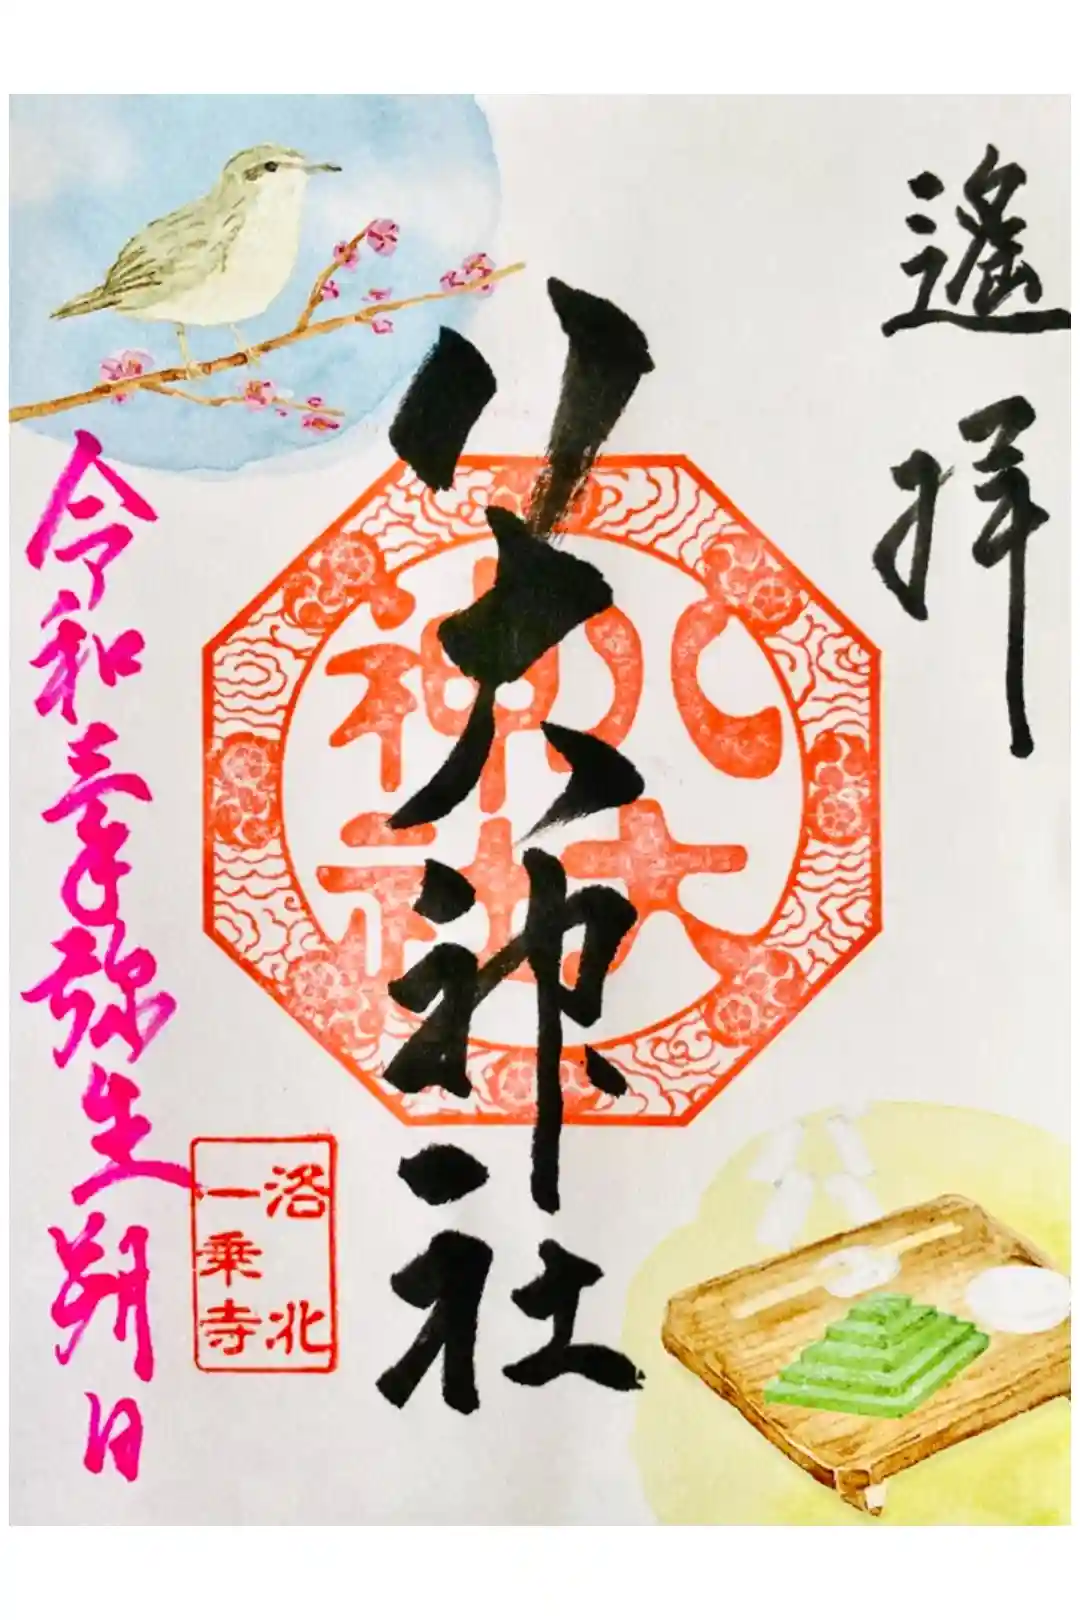 遙拝
八大神社
八大
神社
洛北
一乗寺
令和三年弥生朔日